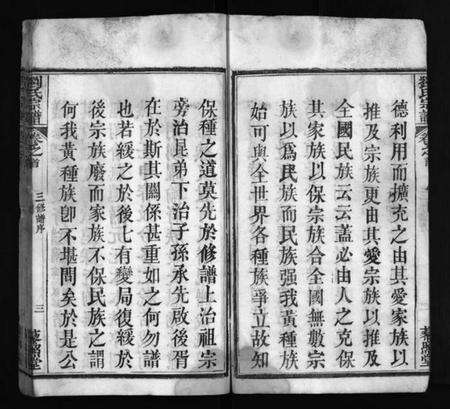 德利用而擴充之由其愛家族以
推及宗族更由其愛宗族以推及
全國民族云云蓋必由人之克保
其家族以保宗族合全國無數宗
族以爲民族而民族强我黄種族
始可與全世界各種族爭立故知
保種之道莫先於修譜上治祖宗
旁治昆弟下治子孫承先啟後胥
在於斯其關係甚重如之何勿譜
也若緩之於後七有變局復緩於
後宗族廢而家族不保民族之謂
何我黄種族卽不堪問矣於是公
劉氏宗譜
卷之首
三修譜序
三